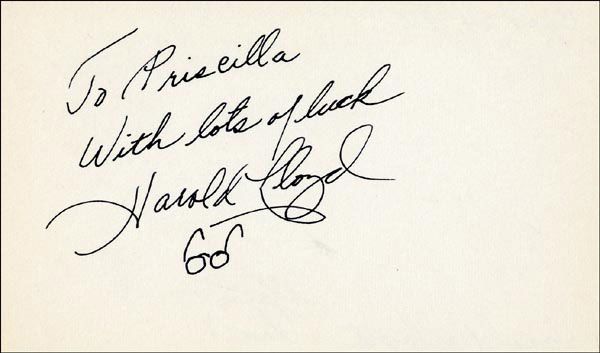 To Priscilla
With lots of luck
Harold Lloyd